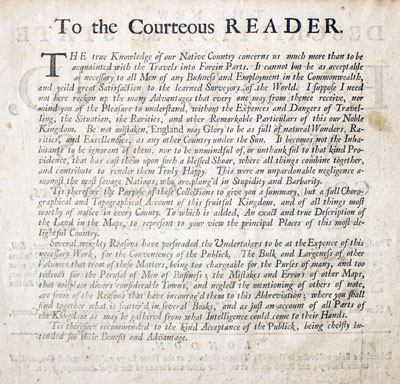 To the Courteous READER.
THE true Knowledge of our Native Country concerns us much more than to be
acquainted with the Travels into Forein Parts. It cannot but be as acceptable
as necessary to all Men of any Business and Employment in the Commonwealth,
and yeild great Satisfaction to the learned Surveyors of the World. I suppose I need
not here reckon up the many Advantages that every one may from thence receive, nor
mind you of the Pleasure to understand, without the Expences and Dangers of Travel-
ling, the Situation, the Rarities, and other Remarkable Particulars of this our Noble
Kingdom. Be not mistaken, England may Glory to be as full of natural Wonders, Ra-
rities, and Excellencies, as any other Country under the Sun. It becomes not the Inha-
bitants to be ignorant of them, nor to be unmindful of, or unthankful to that kind Pro-
vidence, that has cast them upon such a blessed Shoar, where all things combine together,
and contribute to render them Truly Happy. This were an unpardonable negligence a-
mongst the most savage Nations, who are plung'd in Stupidity and Barbarity.
'Tis therefore the Purpose of these Collections to give you a summary, but a full Choro-
graphical and Topographical Account of this fruitful Kingdom, and of all things most
worthy of notice in every County. To which is added, An exact and true Description of
the Land in the Maps, to represent to your view the principal Places of this most de-
lightful Country.
Several weighty Reasons have perswaded the Undertakers to be at the Expence of this
necessary Work, for the Conveniency of the Publick. The Bulk and Largeness of other
Volumes that treat of these Matters, being too chargeable for the Purses of many, and too
tedious for the Perusal of Men of Business; the Mistakes and Errors of other Maps,
that misplace divers considerable Towns, and neglect the mentioning of others of note,
are some of the Reasons that have incourag'd them to this Abbreviation; where you shall
find together what is scatter'd in several Books, and as just an account of all Parts of
the Kingdom as may be gathered from what Intelligence could come to their Hands.
'Tis therefore recommended to the Kind Acceptance of the Publick, being cheifly in-
tended for their Benefit and Advantage.